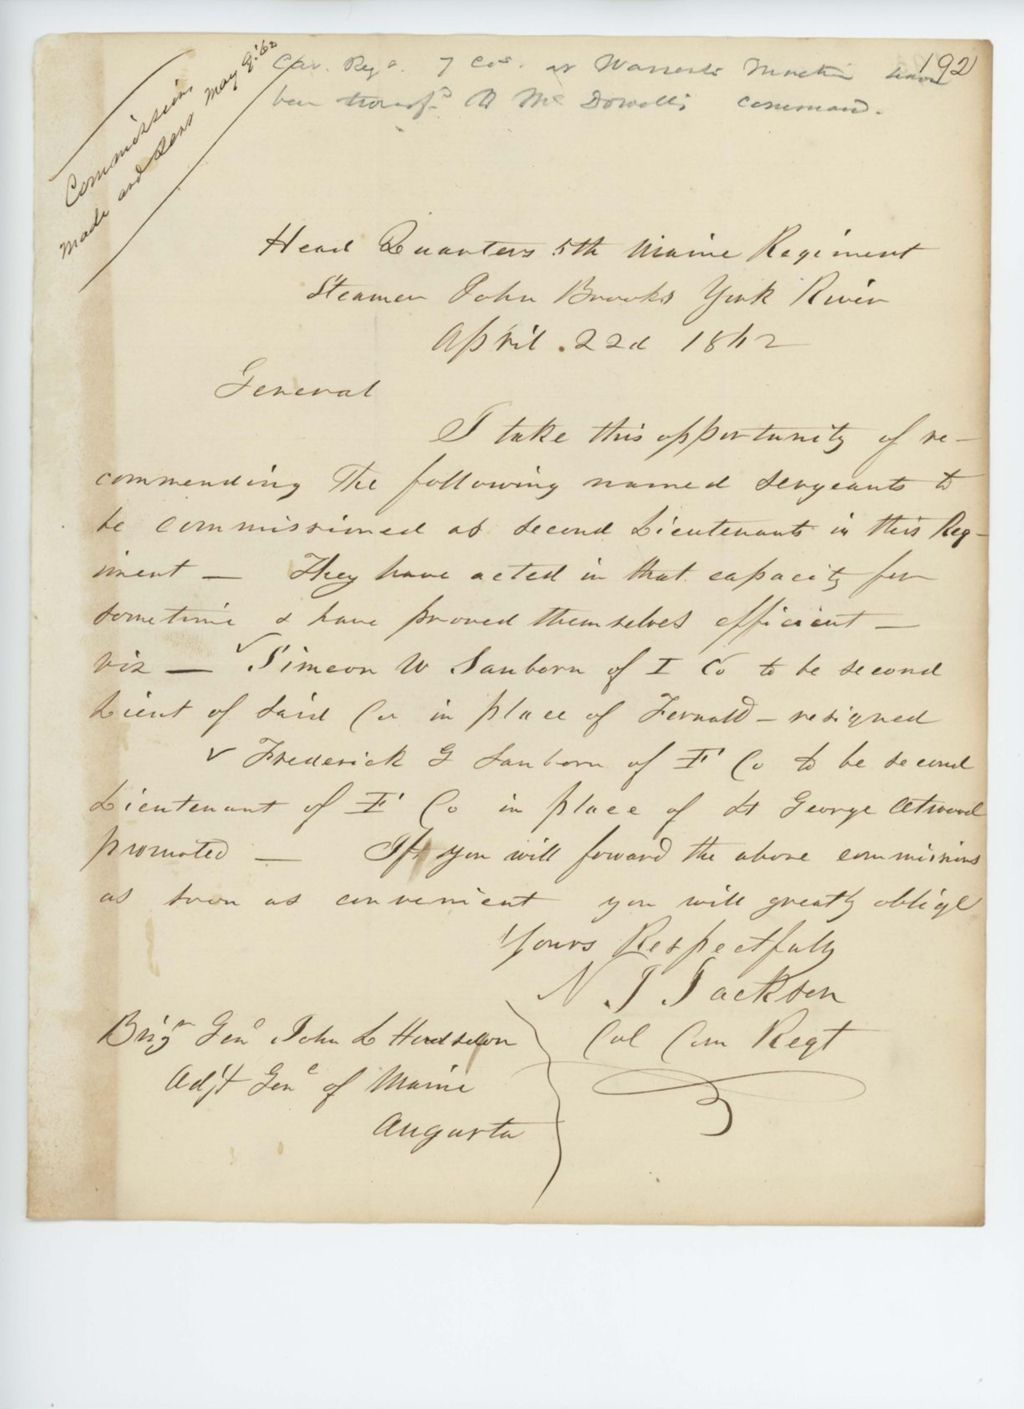 192
Cav. Regt. 7 Cos. at Warrenton Junction have
been transfd to McDowell's command.
Commissions
made and sent May 8.'62
Head Quarters 5th Maine Regiment
Steamer John Brooks York River
April. 22d 1862
General
I take this opportunity of re-
commending the following named sergeants to
be commissioned as second Lieutenants in this Reg-
iment — They have acted in that capacity for
sometime & have proved themselves efficient —
viz — ✓ Simeon W Sanborn of I Co to be second
Lieut of said Co in place of Fernald — resigned
✓ Frederick G Sanborn of F Co to be second
Lieutenant of F Co in place of Lt George Atwood
promoted — If you will forward the above commissions
as soon as convenient you will greatly oblige
Yours Respectfully
N. J Jackson
Col Com Regt
Brigr Genl John L Hodsdon
Adjt Genl of Maine
Augusta